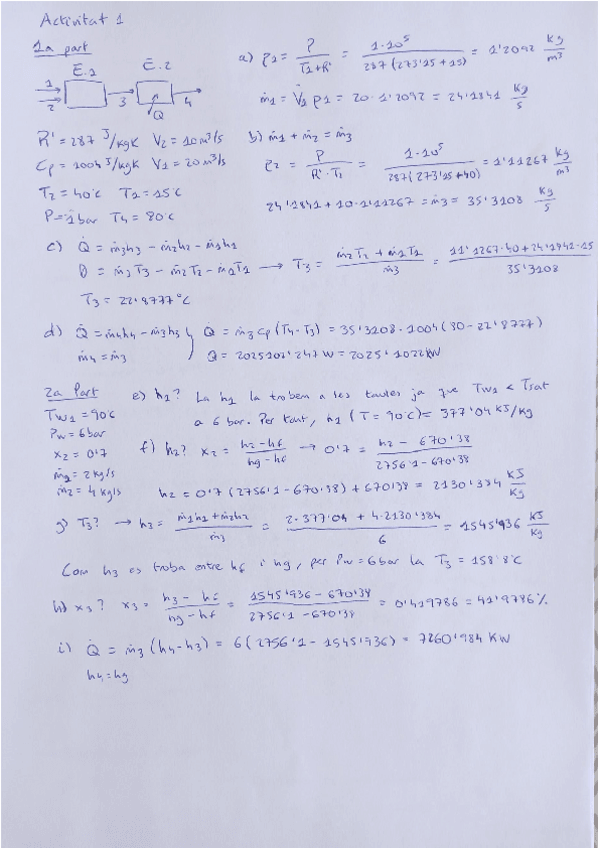 Activitat 1
1a part
E.1 E.2
1 2 3 4 Q
R' = 287 J/kgK V̇2 = 10 m³/s
Cp = 1004 J/kgK V̇1 = 20 m³/s
T2 = 40ºC T1 = 15ºC
P = 1 bar T4 = 80ºC
a) ρ1 = P / (T1·R') = 1·10⁵ / (287(273'15+15)) = 1'2092 kg/m³
ṁ1 = V̇1 ρ1 = 20·1'2092 = 24'1841 kg/s
b) ṁ1 + ṁ2 = ṁ3
ρ2 = P / (R'·T1) = 1·10⁵ / (287(273'15+40)) = 1'11267 kg/m³
24'1841 + 10·1'11267 = ṁ3 = 35'3108 kg/s
c) Q̇ = ṁ3h3 - ṁ2h2 - ṁ1h1
0 = ṁ3T3 - ṁ2T2 - ṁ1T1 → T3 = (ṁ2T2 + ṁ1T1) / ṁ3 = (11'1267·40 + 24'1842·15) / 35'3108
T3 = 22'8777ºC
d) Q̇ = ṁ4h4 - ṁ3h3 } Q̇ = ṁ3 Cp (T4-T3) = 35'3108·1004 (80-22'8777)
ṁ4 = ṁ3 Q = 2025102'247 W = 2025'1022 kW
2a Part
Tw1 = 90ºC
Pw = 6 bar
x2 = 0'7
ṁ1 = 2 kg/s
ṁ2 = 4 kg/s
e) h1? La h1 la trobem a les taules ja que Tw1 < Tsat
a 6 bar. Per tant, h1 (T = 90ºC) = 377'04 kJ/kg
f) h2? x2 = (h2-hf) / (hg-hf) → 0'7 = (h2 - 670'38) / (2756'1-670'38)
h2 = 0'7 (2756'1-670'38) + 670'38 = 2130'384 kJ/kg
g) T3? → h3 = (ṁ1h1 + ṁ2h2) / ṁ3 = (2·377'04 + 4·2130'384) / 6 = 1545'936 kJ/kg
Com h3 es troba entre hf i hg, per Pw = 6 bar la T3 = 158'8ºC
h) x3? x3 = (h3-hf) / (hg-hf) = (1545'936 - 670'38) / (2756'1 - 670'38) = 0'419786 = 41'9786%
i) Q̇ = ṁ3 (h4-h3) = 6 (2756'1 - 1545'936) = 7260'984 KW
h4 = hg